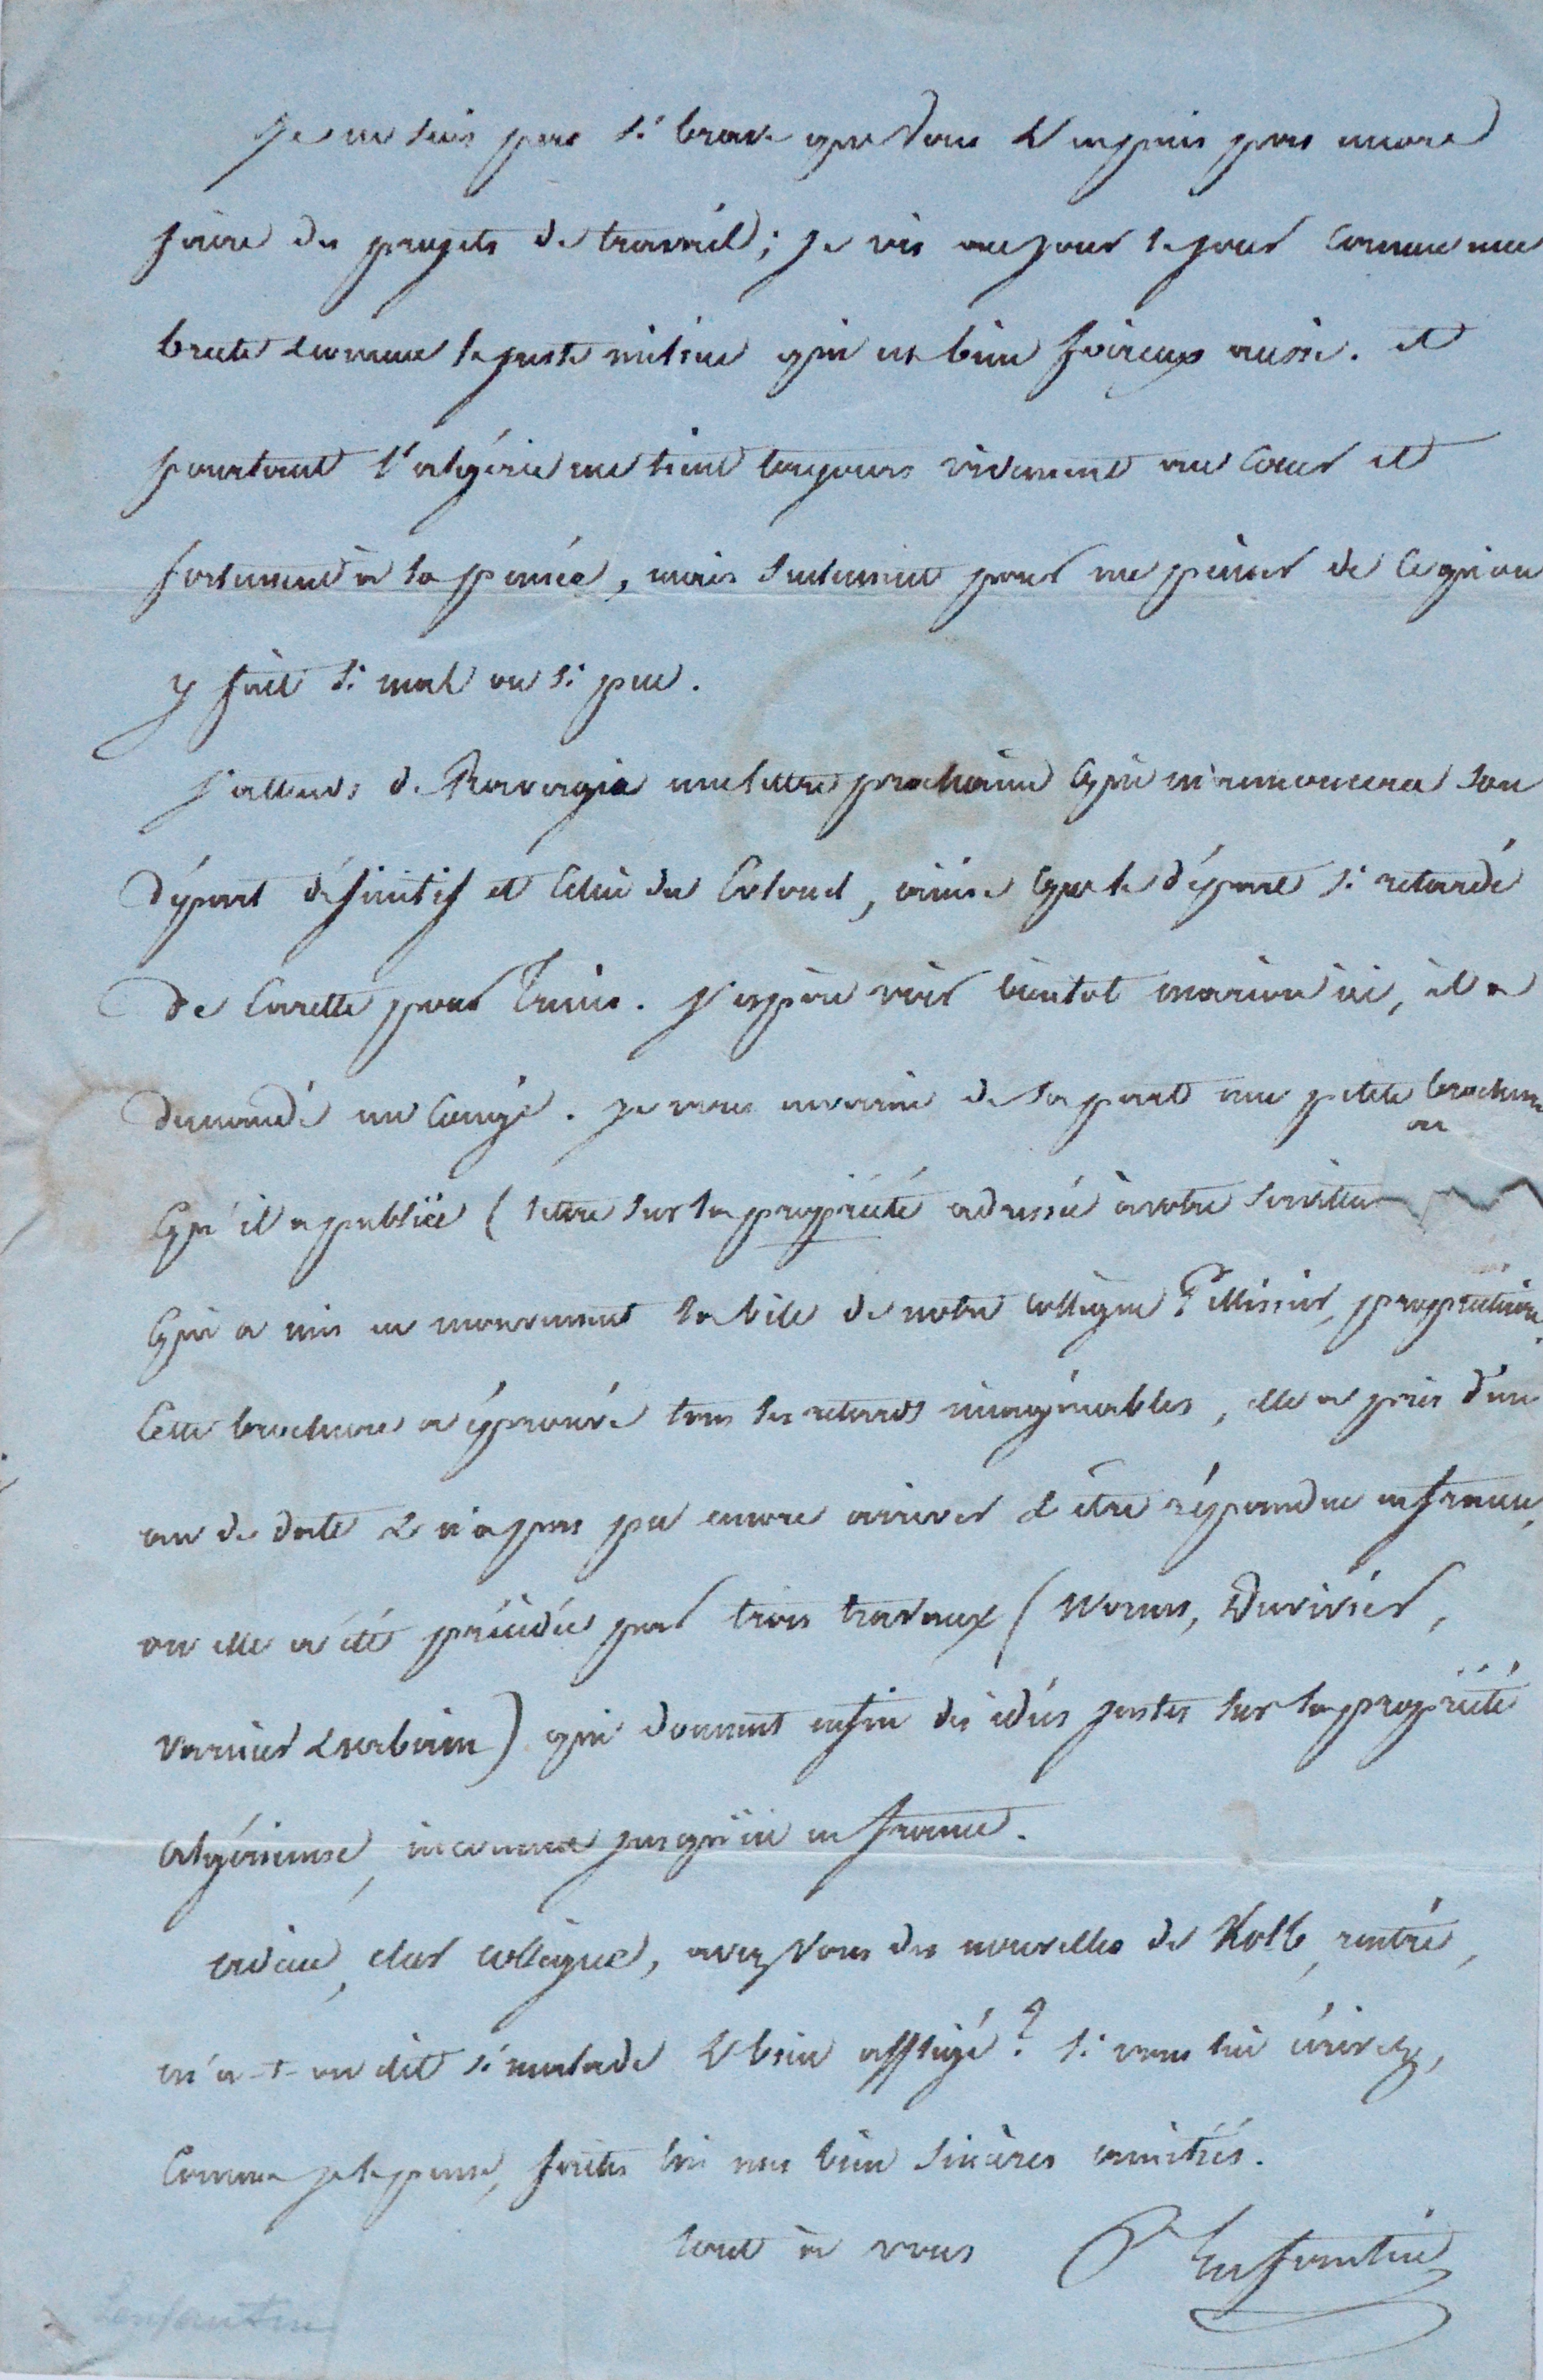 Je ne suis pas si brave que vous & ne puis pas encore
faire des projets de travail; je vis au jour le jour comme une
brute & comme le juste milieu qui est bien foireux aussi. et
pourtant l'algérie me tient toujours vivement au cœur et
fortement à la pensée, mais seulement pour me peiner de ce qu'on
y fait si mal ou si peu.
J'attends de Ravergie une lettre prochaine qui m'annoncera son
départ définitif et celui du Colonel, ainsi que le départ si retardé
de Carette pour Tunis. J'espère voir bientot marion ici, il a
demandé un congé. Je vous envoie de sa part une petite brochure
qu'il a publiée (lettre sur la propriété adressée à votre serviteur
qui a mis en mouvement la bile de notre collègue Pellissier, propriétaire.
Cette brochure a éprouvé tous les retards imaginables, elle a près d'un
an de date & n'a pas pu encore arriver & être répandue en france,
ou elle a été précédée par trois travaux (Worms, Duvivier,
Warnier & urbain) qui donnent enfin des idées justes sur la propriété
algérienne, inconnue jusqu'ici en france.
adieu, cher collègue, avez vous des nouvelles de Kolb, rentré,
m'a-t-on dit si malade & bien affligé? si vous lui écrivez,
comme je le pense, faites lui mes bien sincères amitiés.
tout à vous P Enfantin
Lenfantin